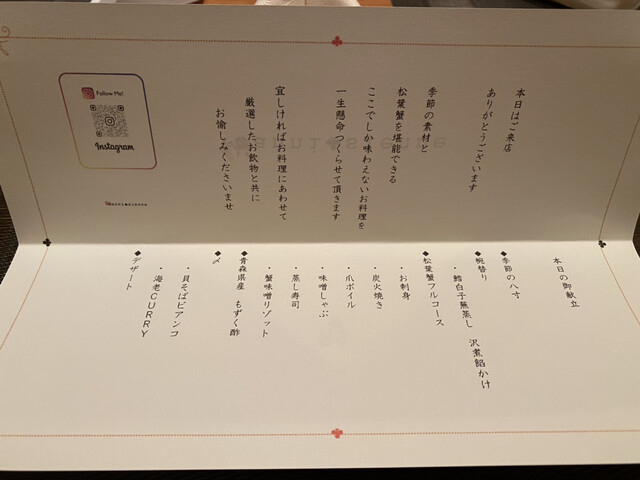 本日はご来店
ありがとうございます
季節の素材と
松葉蟹を堪能できる
ここでしか味わえないお料理を
一生懸命つくらせて頂きます
宜しければお料理にあわせて
厳選したお飲物と共に
お愉しみくださいませ
Follow Me!
Instagram
本日の御献立
◆季節の八寸
◆椀替り
・鱈白子蕪蒸し 沢煮餡かけ
◆松葉蟹フルコース
・お刺身
・炭火焼き
・爪ボイル
・味噌しゃぶ
・蒸し寿司
・蟹味噌リゾット
◆青森県産 もずく酢
◆〆
・貝そばビアンコ
・海老CURRY
◆デザート